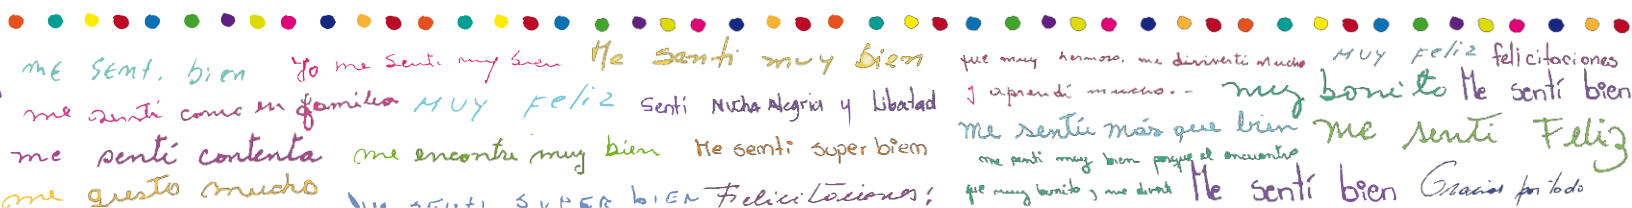 me sentí bien
Yo me senti muy bien
Me senti muy bien
que muy hermoso. me diviverti mucho
MUY Feliz
felicitaciones
me sentí como en familia
MUY Feliz
Sentí Mucha Alegria y Libertad
y aprendí mucho..
muy bonito
Me sentí bien
me sentí contenta
me encontre muy bien
He semti super biem
me sentíu más que bien
me senti Feliz
me senti muy bien porque el encuentro
fue muy bonito y me diverti
me gusto mucho
Me SENTI SUPER biEN
Felicitaciones!
Me sentí bien
Gracias por todo